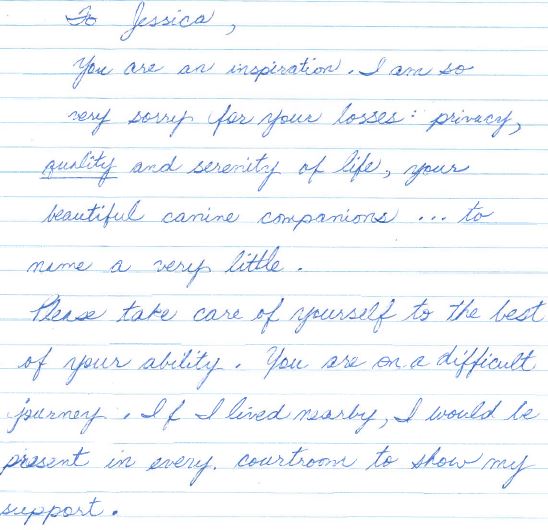 To Jessica,
You are an inspiration. I am so
very sorry for your losses: privacy,
quality and serenity of life, your
beautiful canine companions ... to
name a very little.
Please take care of yourself to the best
of your ability. You are on a difficult
journey. If I lived nearby, I would be
present in every. courtroom to show my
support.